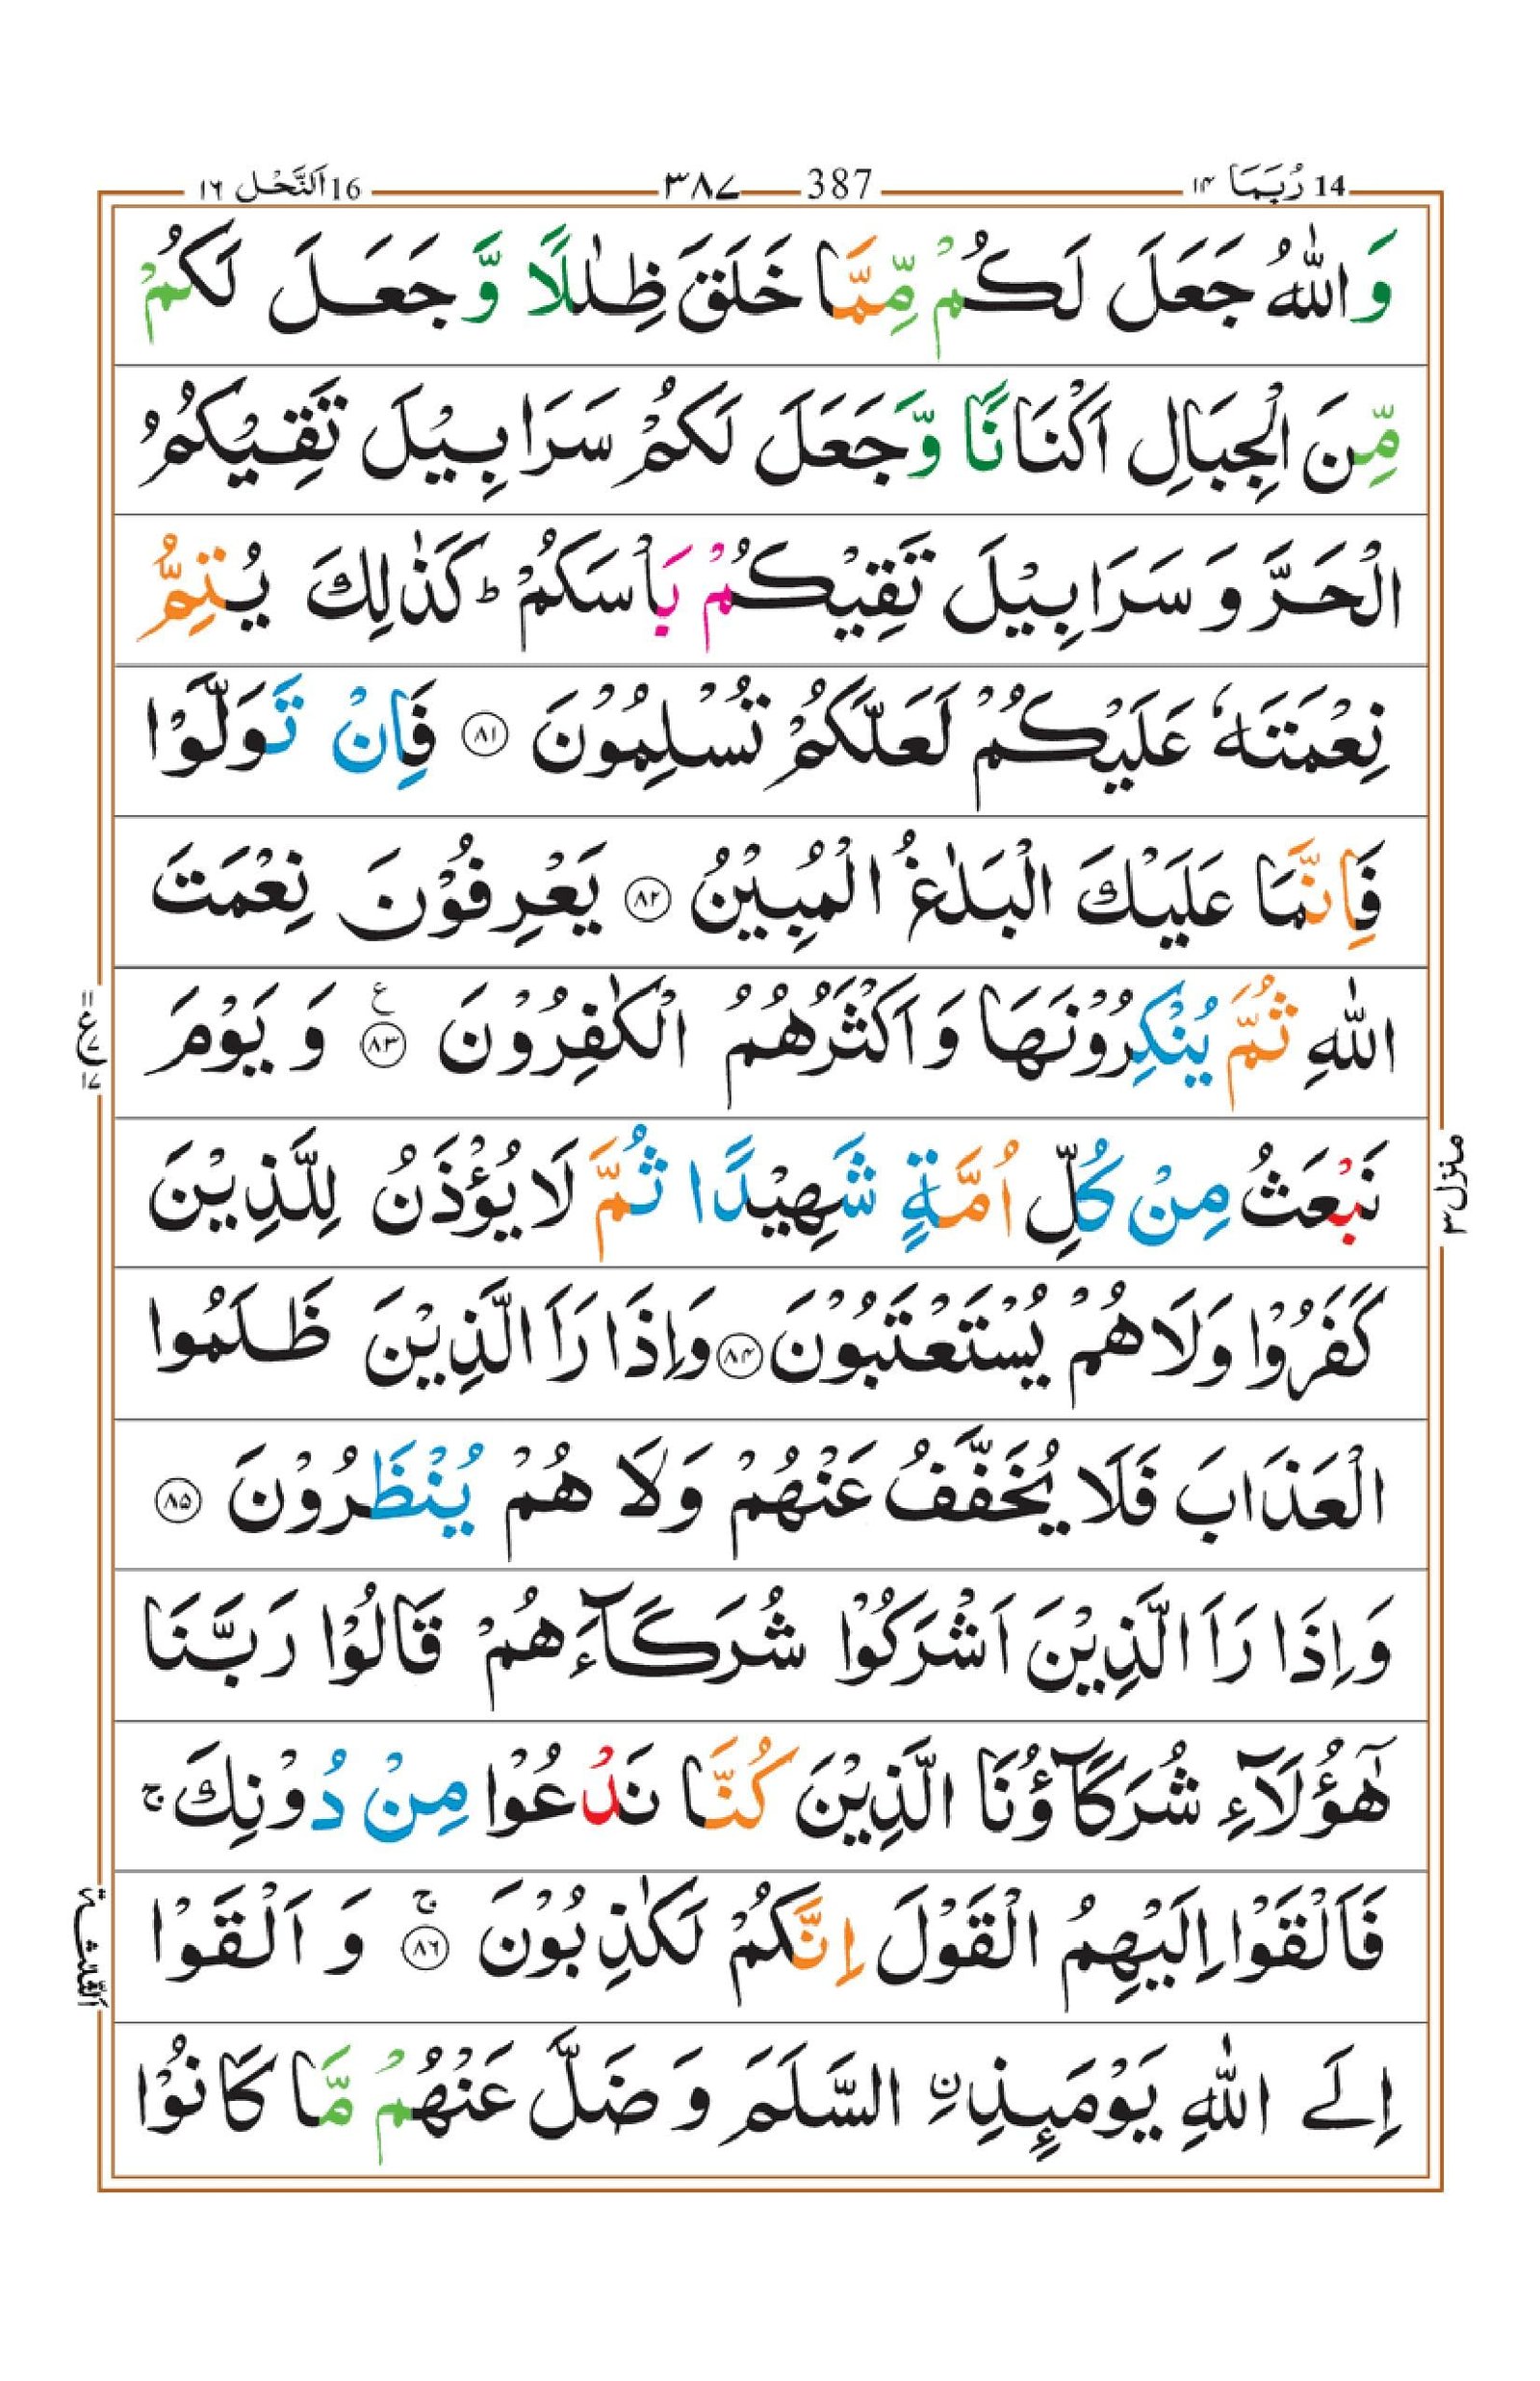 14 رُبَمَا ۱۴
387 ۳۸۷
16 اَلنَّحْل ۱۶
وَاللّٰهُ جَعَلَ لَكُمْ مِّمَّا خَلَقَ ظِلٰلًا وَّجَعَلَ لَكُمْ
مِّنَ الْجِبَالِ اَكْنَانًا وَّجَعَلَ لَكُمْ سَرَابِيْلَ تَقِيْكُمُ
الْحَرَّ وَ سَرَابِيْلَ تَقِيْكُمْ بَاْسَكُمْ ؕ كَذٰلِكَ يُتِمُّ
نِعْمَتَهٗ عَلَيْكُمْ لَعَلَّكُمْ تُسْلِمُوْنَ ۸۱ فَاِنْ تَوَلَّوْا
فَاِنَّمَا عَلَيْكَ الْبَلٰغُ الْمُبِيْنُ ۸۲ يَعْرِفُوْنَ نِعْمَتَ
اللّٰهِ ثُمَّ يُنْكِرُوْنَهَا وَاَكْثَرُهُمُ الْكٰفِرُوْنَ ۸۳ ع وَ يَوْمَ
۱۱ ع ۷ ۱۷
نَبْعَثُ مِنْ كُلِّ اُمَّةٍ شَهِيْدًا ثُمَّ لَا يُؤْذَنُ لِلَّذِيْنَ
منزل ۳
كَفَرُوْا وَلَا هُمْ يُسْتَعْتَبُوْنَ ۸۴ وَاِذَا رَاَ الَّذِيْنَ ظَلَمُوا
الْعَذَابَ فَلَا يُخَفَّفُ عَنْهُمْ وَلَا هُمْ يُنْظَرُوْنَ ۸۵
وَاِذَا رَاَ الَّذِيْنَ اَشْرَكُوْا شُرَكَآءَهُمْ قَالُوْا رَبَّنَا
هٰٓؤُلَآءِ شُرَكَآؤُنَا الَّذِيْنَ كُنَّا نَدْعُوْا مِنْ دُوْنِكَ ۚ
فَاَلْقَوْا اِلَيْهِمُ الْقَوْلَ اِنَّكُمْ لَكٰذِبُوْنَ ۸۶ ۚ وَ اَلْقَوْا
الثلٰثة
اِلَى اللّٰهِ يَوْمَىِٕذِ ِۨ السَّلَمَ وَ ضَلَّ عَنْهُمْ مَّا كَانُوْا